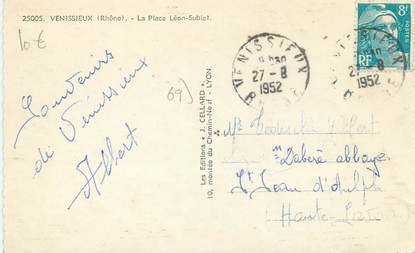 25005. VENISSIEUX (Rhône). - La Place Léon-Sublet.
10€
69)
Souvenirs
de Vénissieux
Albert
Les Editions J. CELLARD
10, montée du Chemin-Neuf - LYON.
VENISSIEUX
27-8
1952
VENISSIEUX
8
1952
8F
POSTES
RF
abbaye
St Jean d'Aulph
Haute